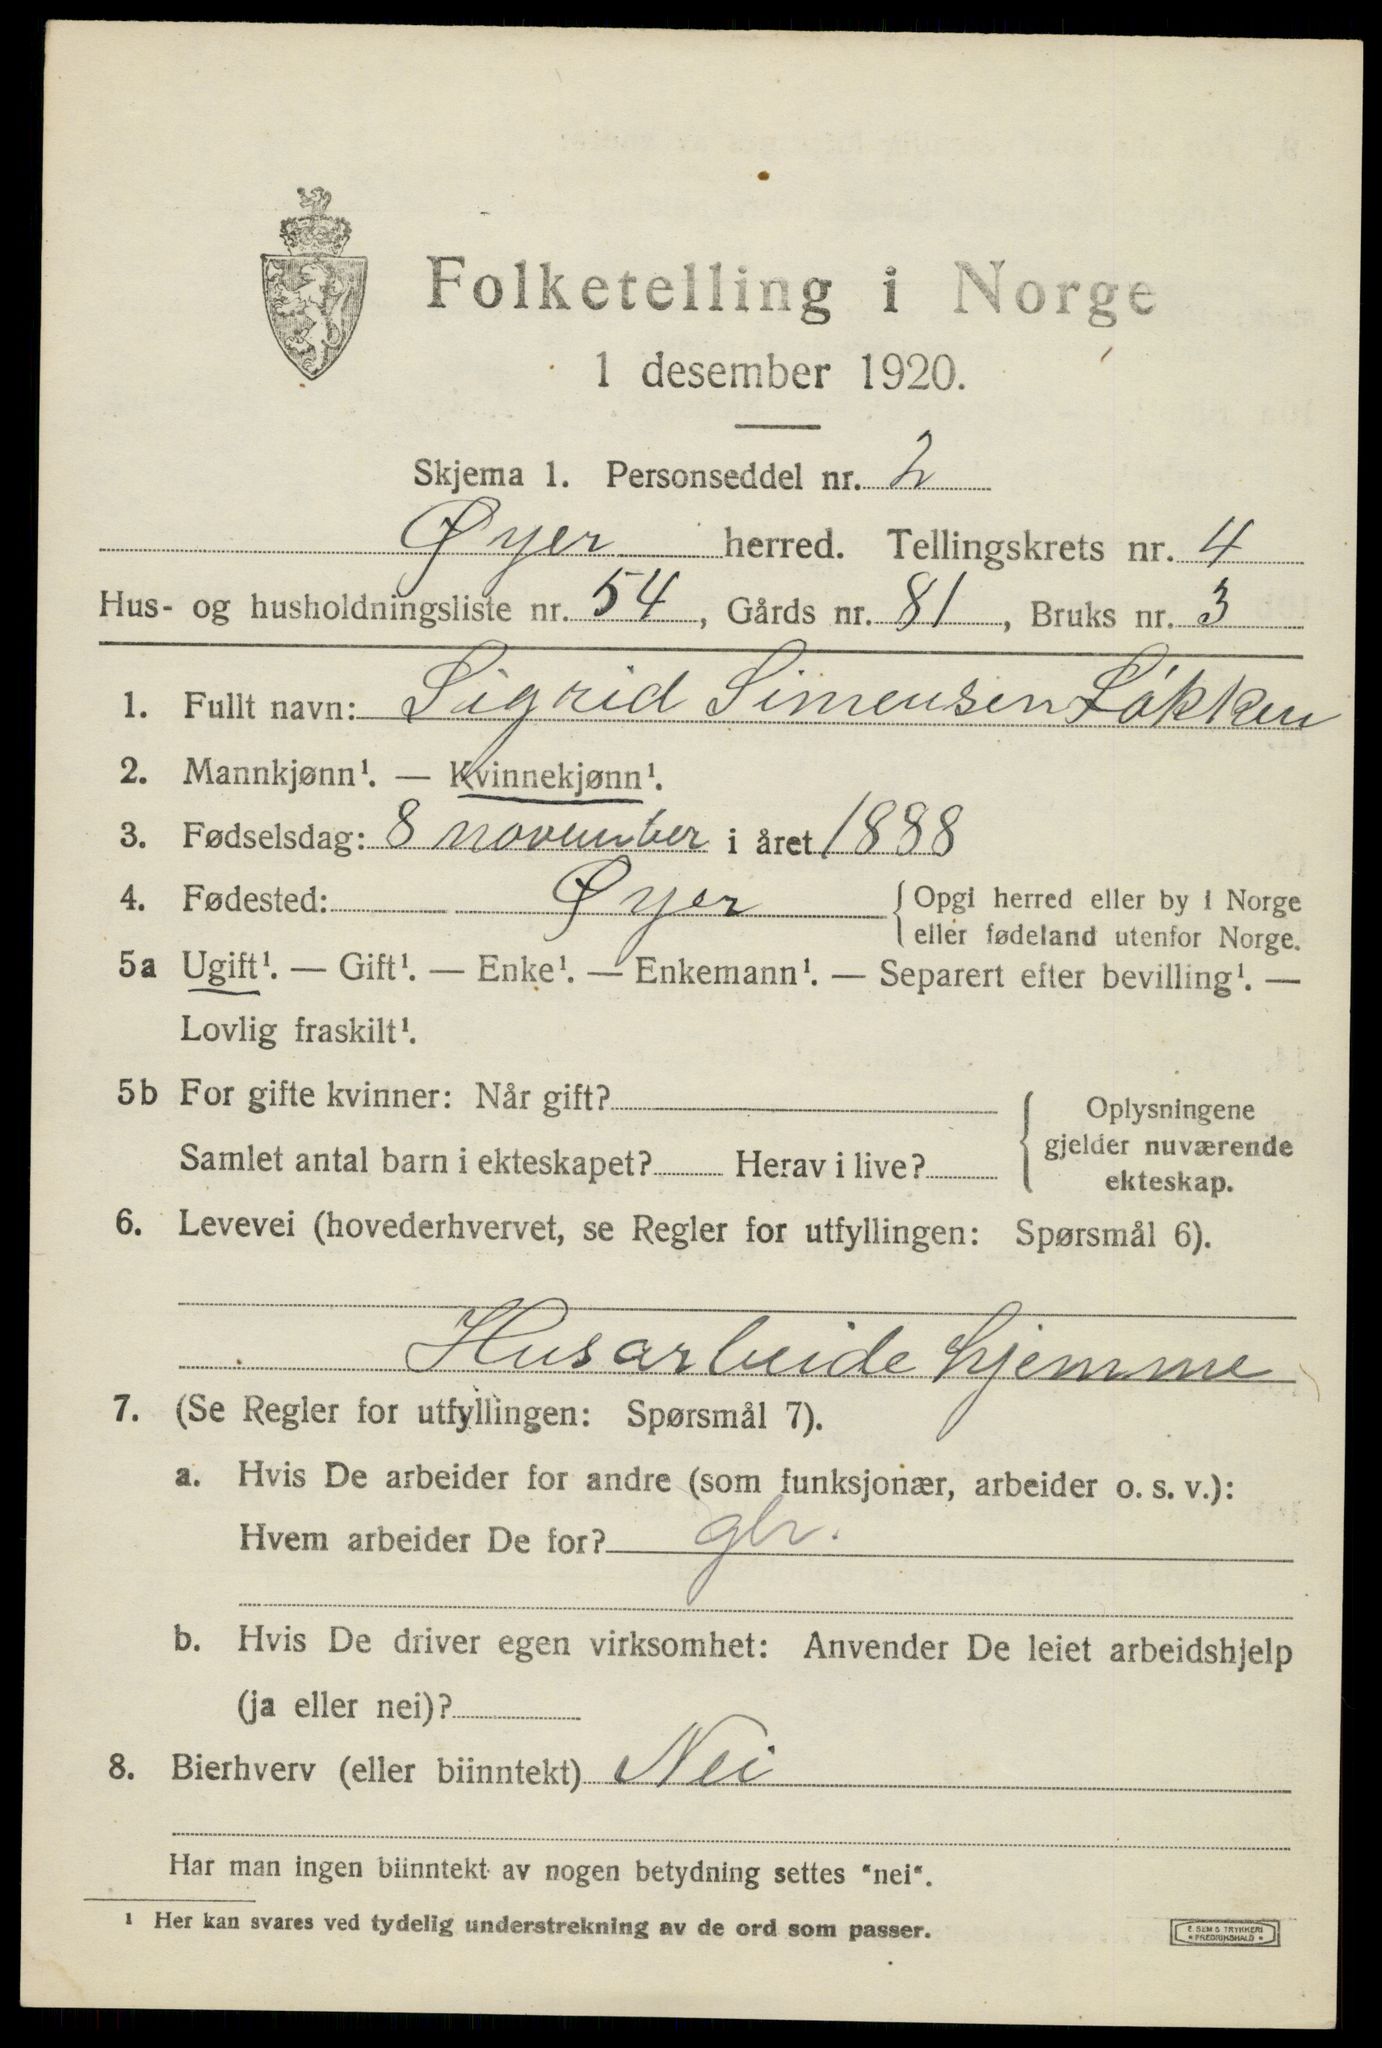 Folketelling i Norge
1 desember 1920.
Skjema 1. Personseddel nr. 2
Øyer herred. Tellingskrets nr. 4
Hus- og husholdningsliste nr. 54, Gårds nr. 81, Bruks nr. 3
1. Fullt navn: Sigrid Simensen Løkken
2. Mannkjønn¹. — Kvinnekjønn¹.
3. Fødselsdag: 8 november i året 1888
4. Fødested: Øyer { Opgi herred eller by i Norge
eller fødeland utenfor Norge.
5a Ugift¹. — Gift¹. — Enke¹. — Enkemann¹. — Separert efter bevilling¹. —
Lovlig fraskilt¹.
5b For gifte kvinner: Når gift? { Oplysningene
gjelder nuværende
Samlet antal barn i ekteskapet? Herav i live?
ekteskap.
6. Levevei (hovederhvervet, se Regler for utfyllingen: Spørsmål 6).
Husarbeide hjemme
7. (Se Regler for utfyllingen: Spørsmål 7).
a. Hvis De arbeider for andre (som funksjonær, arbeider o. s. v.):
Hvem arbeider De for? gbr.
b. Hvis De driver egen virksomhet: Anvender De leiet arbeidshjelp
(ja eller nei)?
8. Bierhverv (eller biinntekt) Nei
Har man ingen biinntekt av nogen betydning settes "nei".
¹ Her kan svares ved tydelig understrekning av de ord som passer.
E. SEM'S TRYKKERI
* FREDRIKSHALD *